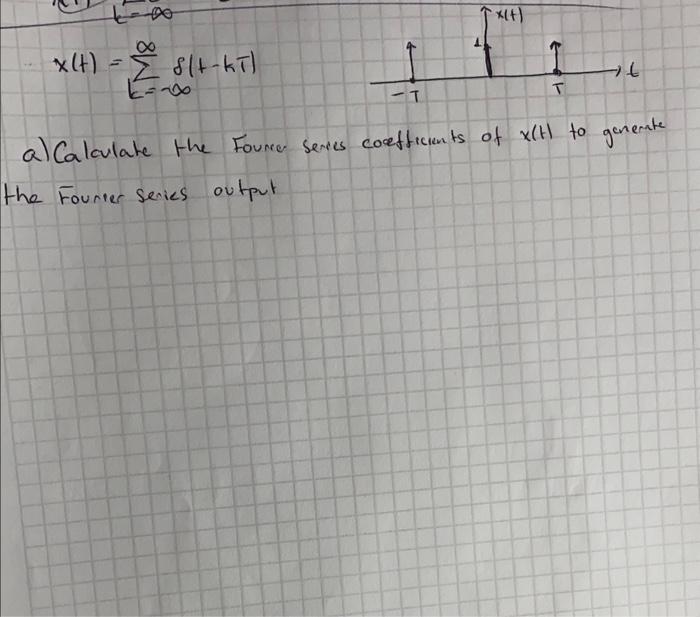 k=-∞
x(t) = ∞ Σ k=-∞ δ(t-kT)
x(t)
1
t
-T
T
a) Calculate the Fourier series coefficients of x(t) to generate
the Fourier series output